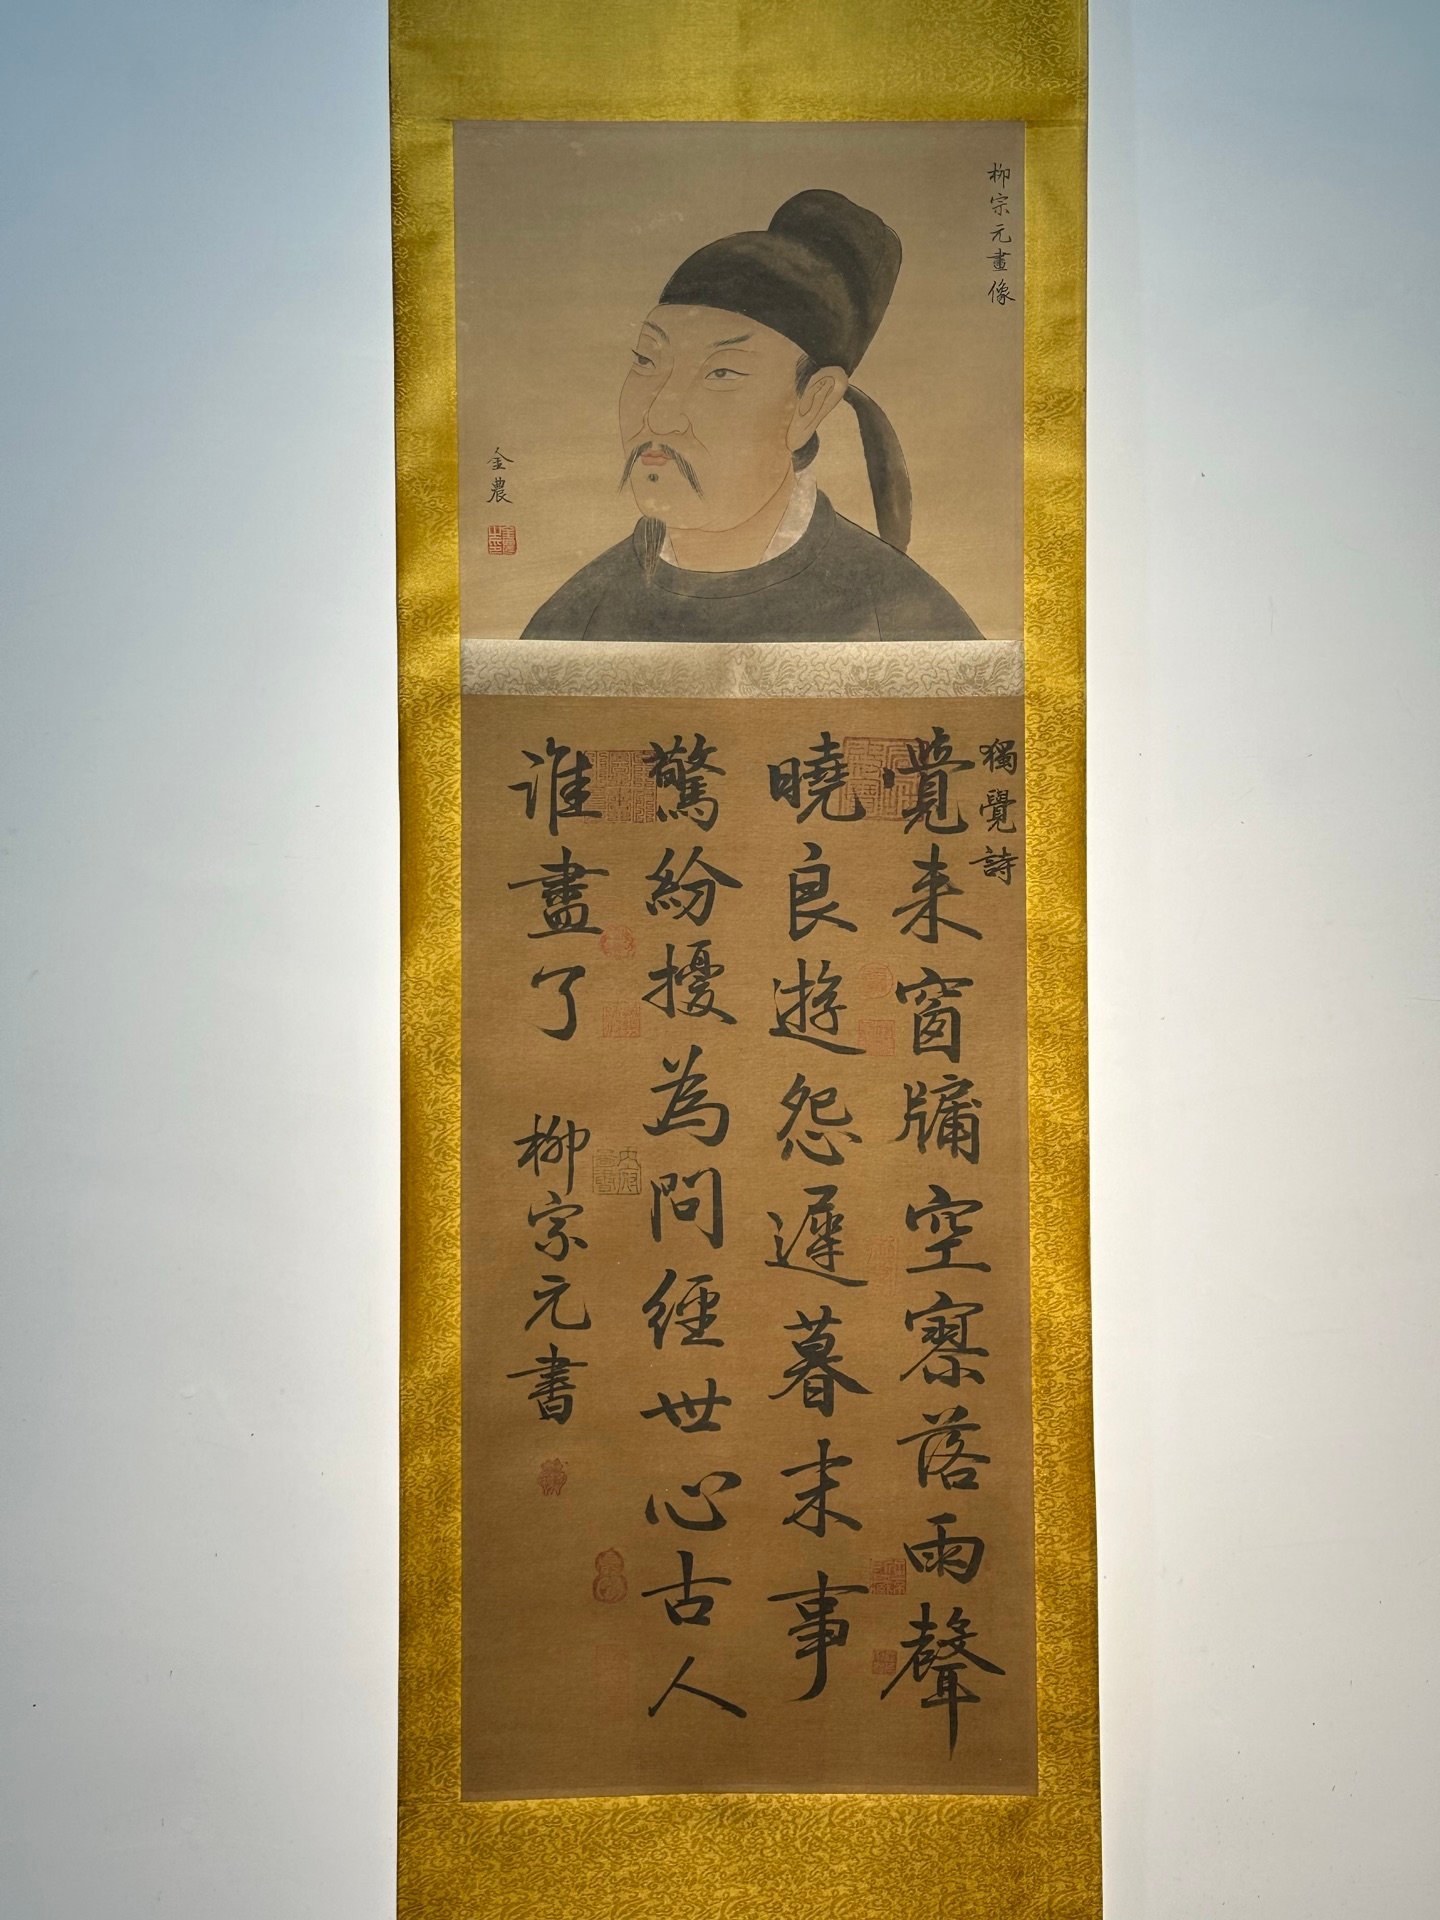 柳宗元畫像
金農
獨覺詩
覺来窗牖空寥落雨聲
曉良遊怨遲暮末事
驚紛擾為問經世心古人
谁盡了
柳宗元書